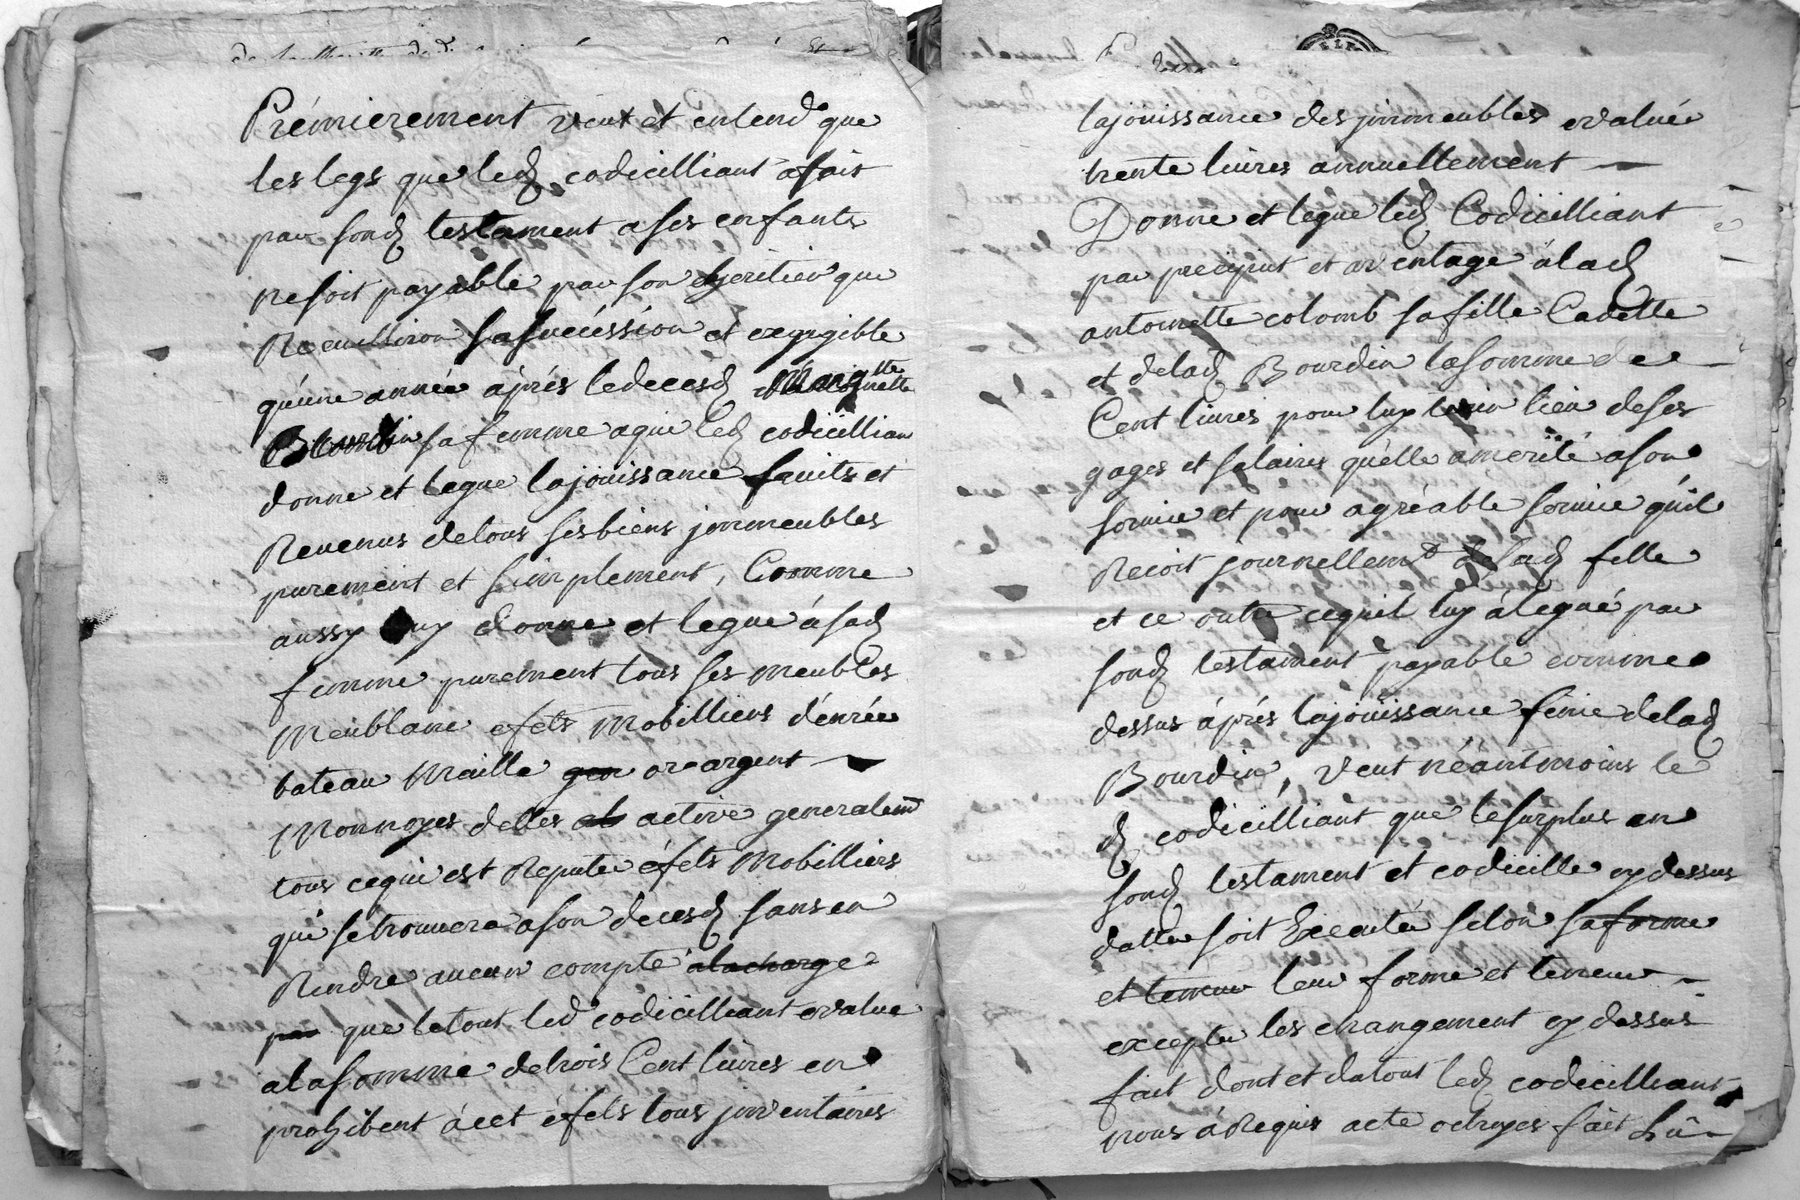 Prémierement veut et entend que
les legs que led codicilliant a fait
par sond testament a ses enfants
ne soit payable par son heritier que
Recuilliron sa succéssion et exgigible
qu'une année áprés le decesd
Bourdin sa femme a qui led codicillian
donne et legue la jouissance fruits et
Revenus de tous ses biens jmmeubles
purement et simplement, Comme
aussy luy donne et legue á sad
femme purement tous ses meubles
Meublant efets Mobilliers d'enrée
bateau Maille or argent
Monnoyes debtes active generalemt
tous ce qui est Reputé éfets Mobilliers
qui se trouvera a son decesd sans en
Rendre aucun compte a la charge
par que le tout led codicilliant evalue
a la somme de trois Cent livres en
prohibent á cet éfets tous jnventaires
la jouissance des jmmeubles evalué
trente livres annuellement
Donne et legue led Codicilliant
par preciput et aventage á lad
antoinette colomb sa fille Cadette
et de lad Bourdin la somme de
Cent livres pour luy tenir lieu de ses
gages et salaires qu'elle a merité a son
service et pour agréable service qu'il
Recoit journellemt de lad fille
et ce outre ce qu'il luy á legué par
sond testament payable comme
dessus áprés la jouissance finie de lad
Bourdin, veut néantmoins le
d codicilliant que le surplus en
sond testament et codicille cy dessus
datte soit Executé selon sa forme
et teneur leur forme et teneur
excepté les changement cy dessus
fait dont et du tout led codicilliant
nous á Requis acte octroyes fait